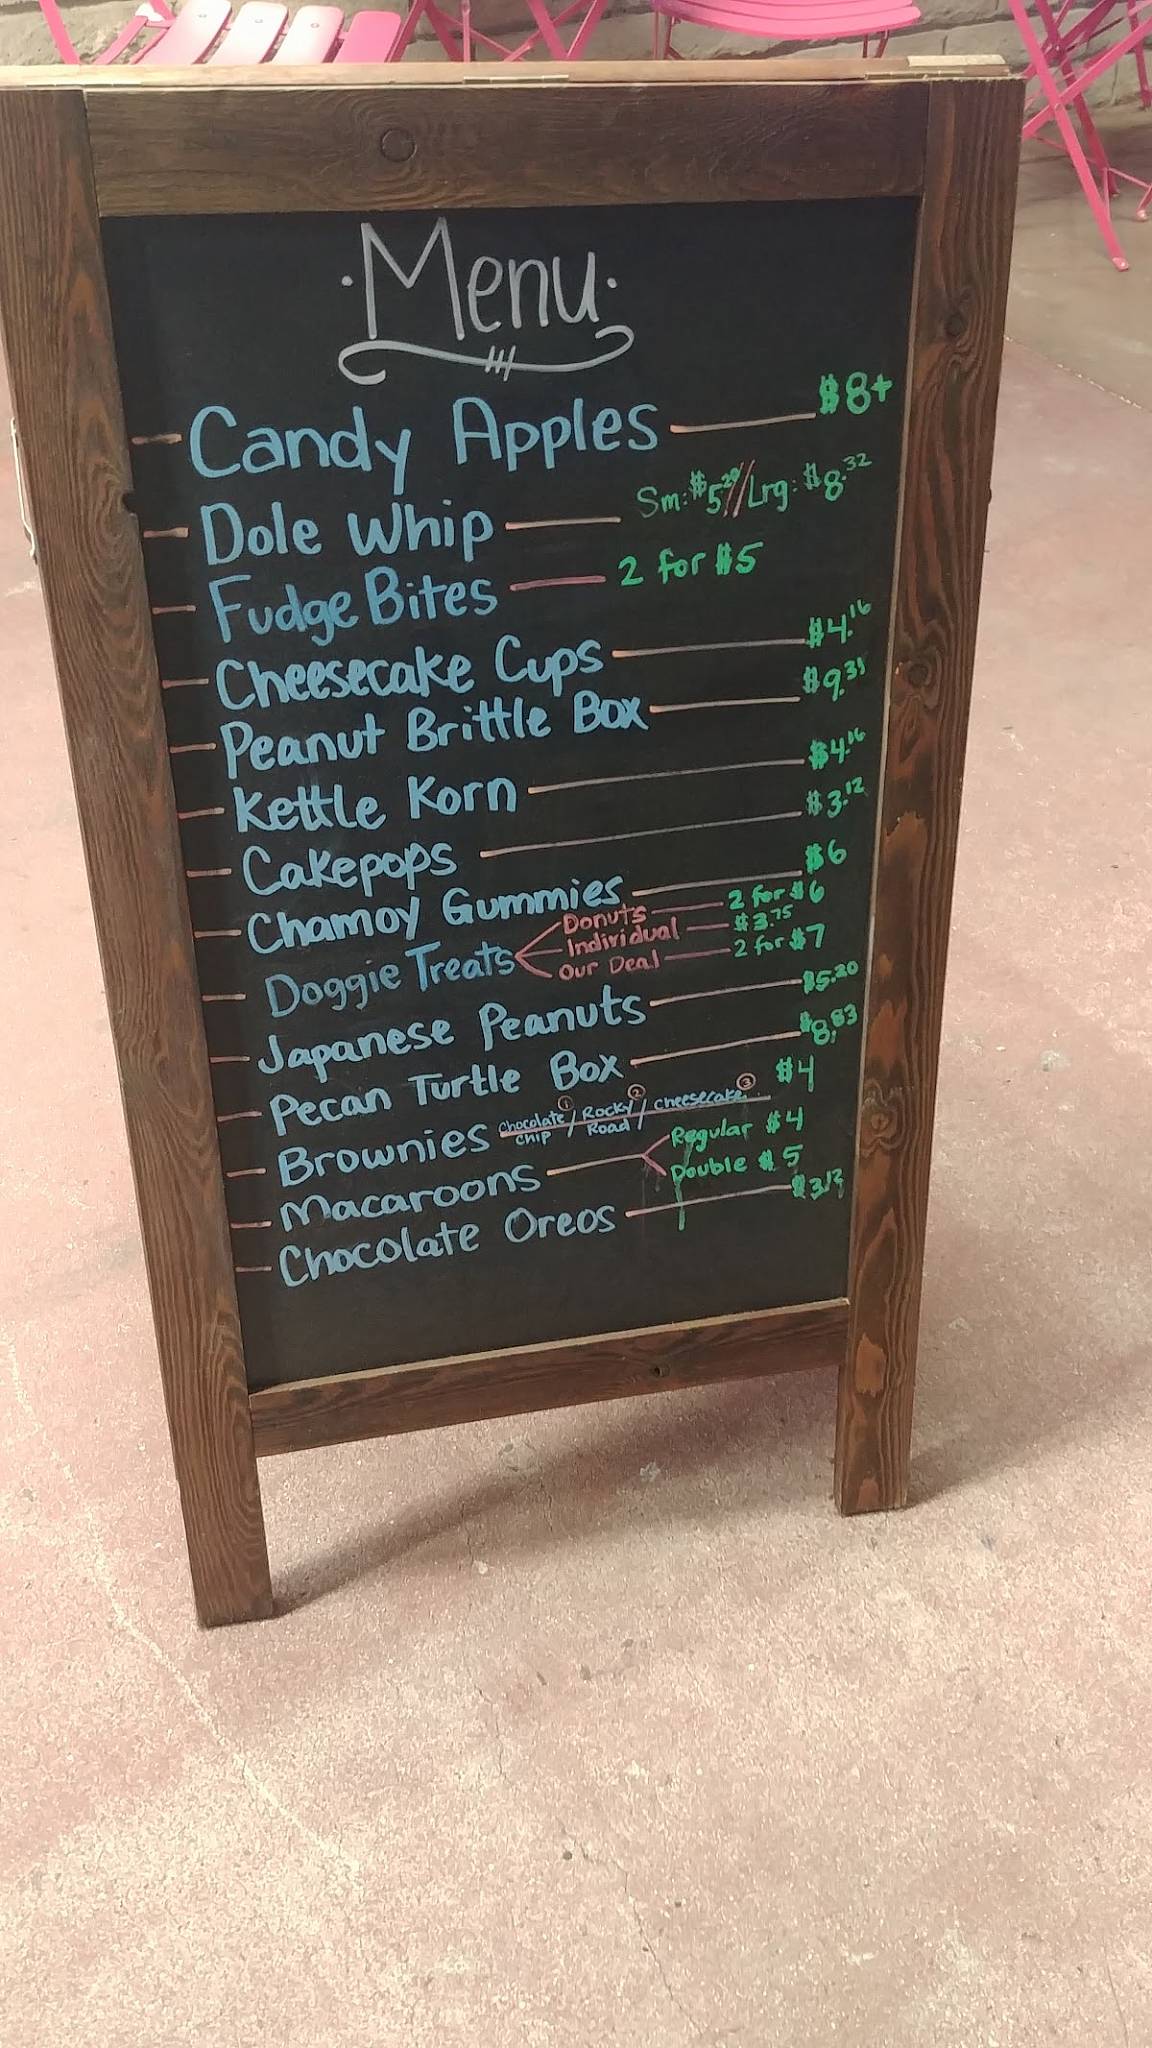 ·Menu·
Candy Apples $8+
Dole Whip Sm: $5.20 // Lrg: $8.32
Fudge Bites 2 for $5
Cheesecake Cups $4.16
Peanut Brittle Box $9.35
Kettle Korn $4.16
Cakepops $3.12
Chamoy Gummies $6
Doggie Treats
Donuts 2 for $6
Individual $3.75
Our Deal 2 for $7
Japanese Peanuts $5.20
Pecan Turtle Box $8.83
Brownies Chocolate Chip ① / Rocky Road ② / Cheesecake ③ $4
Macaroons
Regular $4
Double $5
Chocolate Oreos $3.12